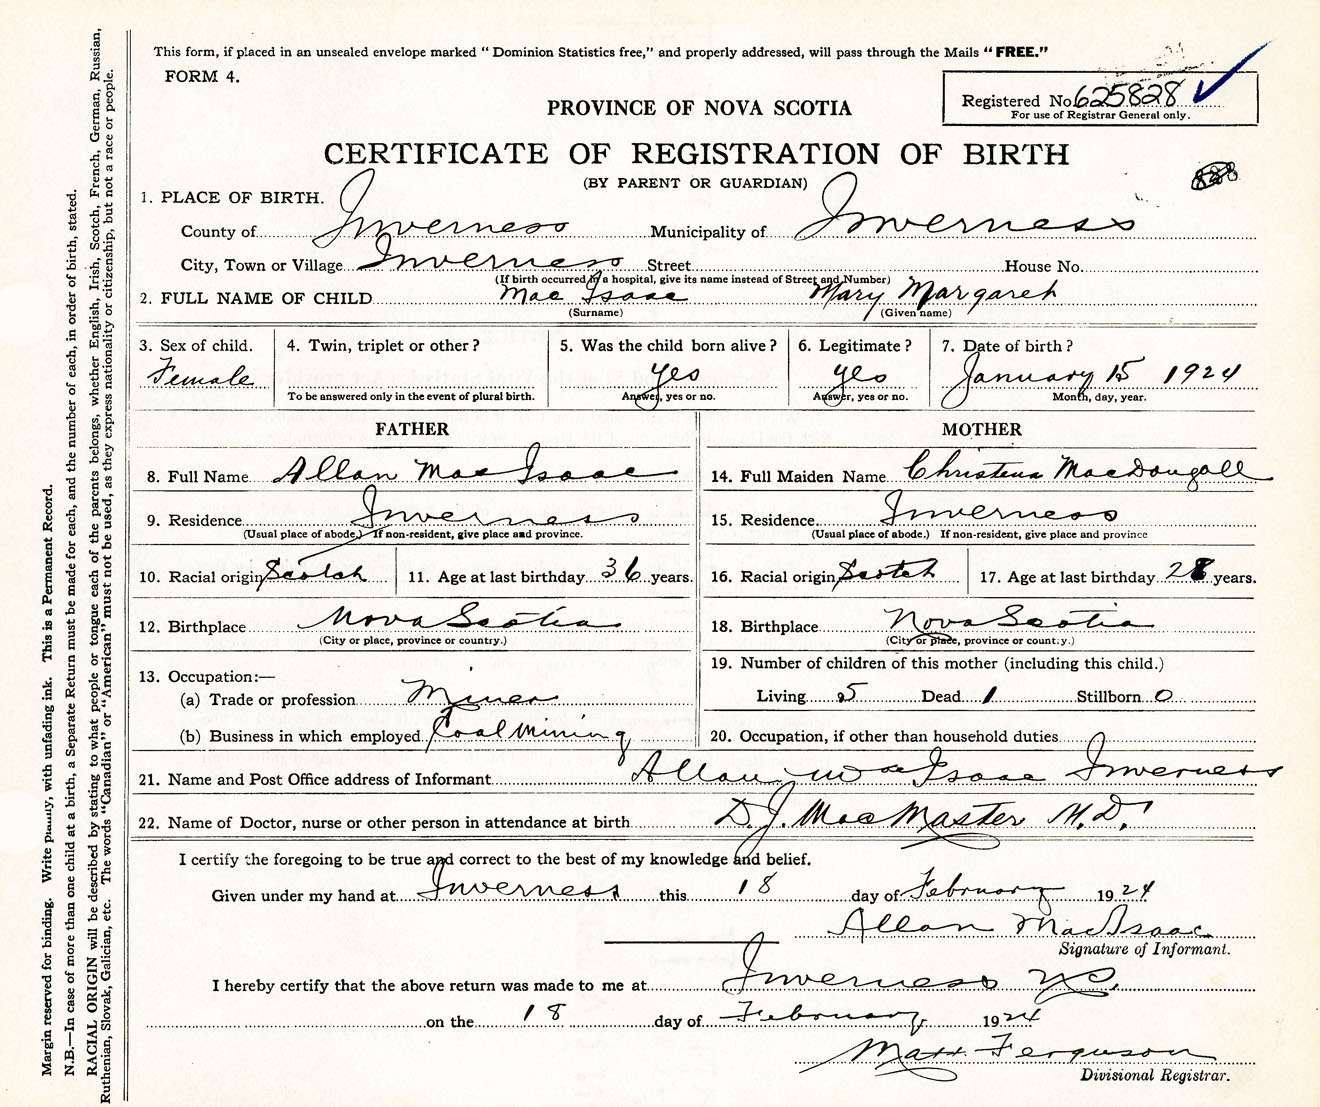 This form, if placed in an unsealed envelope marked " Dominion Statistics free," and properly addressed, will pass through the Mails " FREE."
FORM 4.
Registered No. 625828
For use of Registrar General only.
PROVINCE OF NOVA SCOTIA
CERTIFICATE OF REGISTRATION OF BIRTH
(BY PARENT OR GUARDIAN)
1. PLACE OF BIRTH.
County of Inverness Municipality of Inverness
City, Town or Village Inverness Street House No.
(If birth occurred in a hospital, give its name instead of Street and Number)
2. FULL NAME OF CHILD Mac Isaac Mary Margaret
(Surname) (Given name)
3. Sex of child. 4. Twin, triplet or other? 5. Was the child born alive? 6. Legitimate? 7. Date of birth?
Female yes yes January 15 1924
To be answered only in the event of plural birth. Answer, yes or no. Answer, yes or no. Month, day, year.
FATHER MOTHER
8. Full Name Allan Mac Isaac 14. Full Maiden Name Christena MacDougall
9. Residence Inverness 15. Residence Inverness
(Usual place of abode.) If non-resident, give place and province. (Usual place of abode.) If non-resident, give place and province
10. Racial origin Scotch 11. Age at last birthday 36 years. 16. Racial origin Scotch 17. Age at last birthday 28 years.
12. Birthplace Nova Scotia 18. Birthplace Nova Scotia
(City or place, province or country.) (City or place, province or country.)
13. Occupation:— 19. Number of children of this mother (including this child.)
(a) Trade or profession Miner Living 5 Dead 1 Stillborn 0
(b) Business in which employed Coal Mining 20. Occupation, if other than household duties
21. Name and Post Office address of Informant Allan Mac Isaac Inverness
22. Name of Doctor, nurse or other person in attendance at birth D. J. MacMaster M.D.
I certify the foregoing to be true and correct to the best of my knowledge and belief.
Given under my hand at Inverness this 18 day of February 1924
Allan MacIsaac
Signature of Informant.
I hereby certify that the above return was made to me at Inverness NS.
on the 18 day of February 1924
Matt Ferguson
Divisional Registrar.
Margin reserved for binding. Write plainly, with unfading ink. This is a Permanent Record.
N.B.—In case of more than one child at a birth, a Separate Return must be made for each, and the number of each, in order of birth, stated.
RACIAL ORIGIN will be described by stating to what people or tongue each of the parents belongs, whether English, Irish, Scotch, French, German, Russian,
Ruthenian, Slovak, Galician, etc. The words "Canadian" or "American" must not be used, as they express nationality or citizenship, but not a race or people.